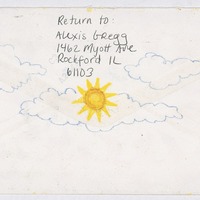 Return to:
Alexis Gregg
1462 Myott Ave
Rockford IL
61103